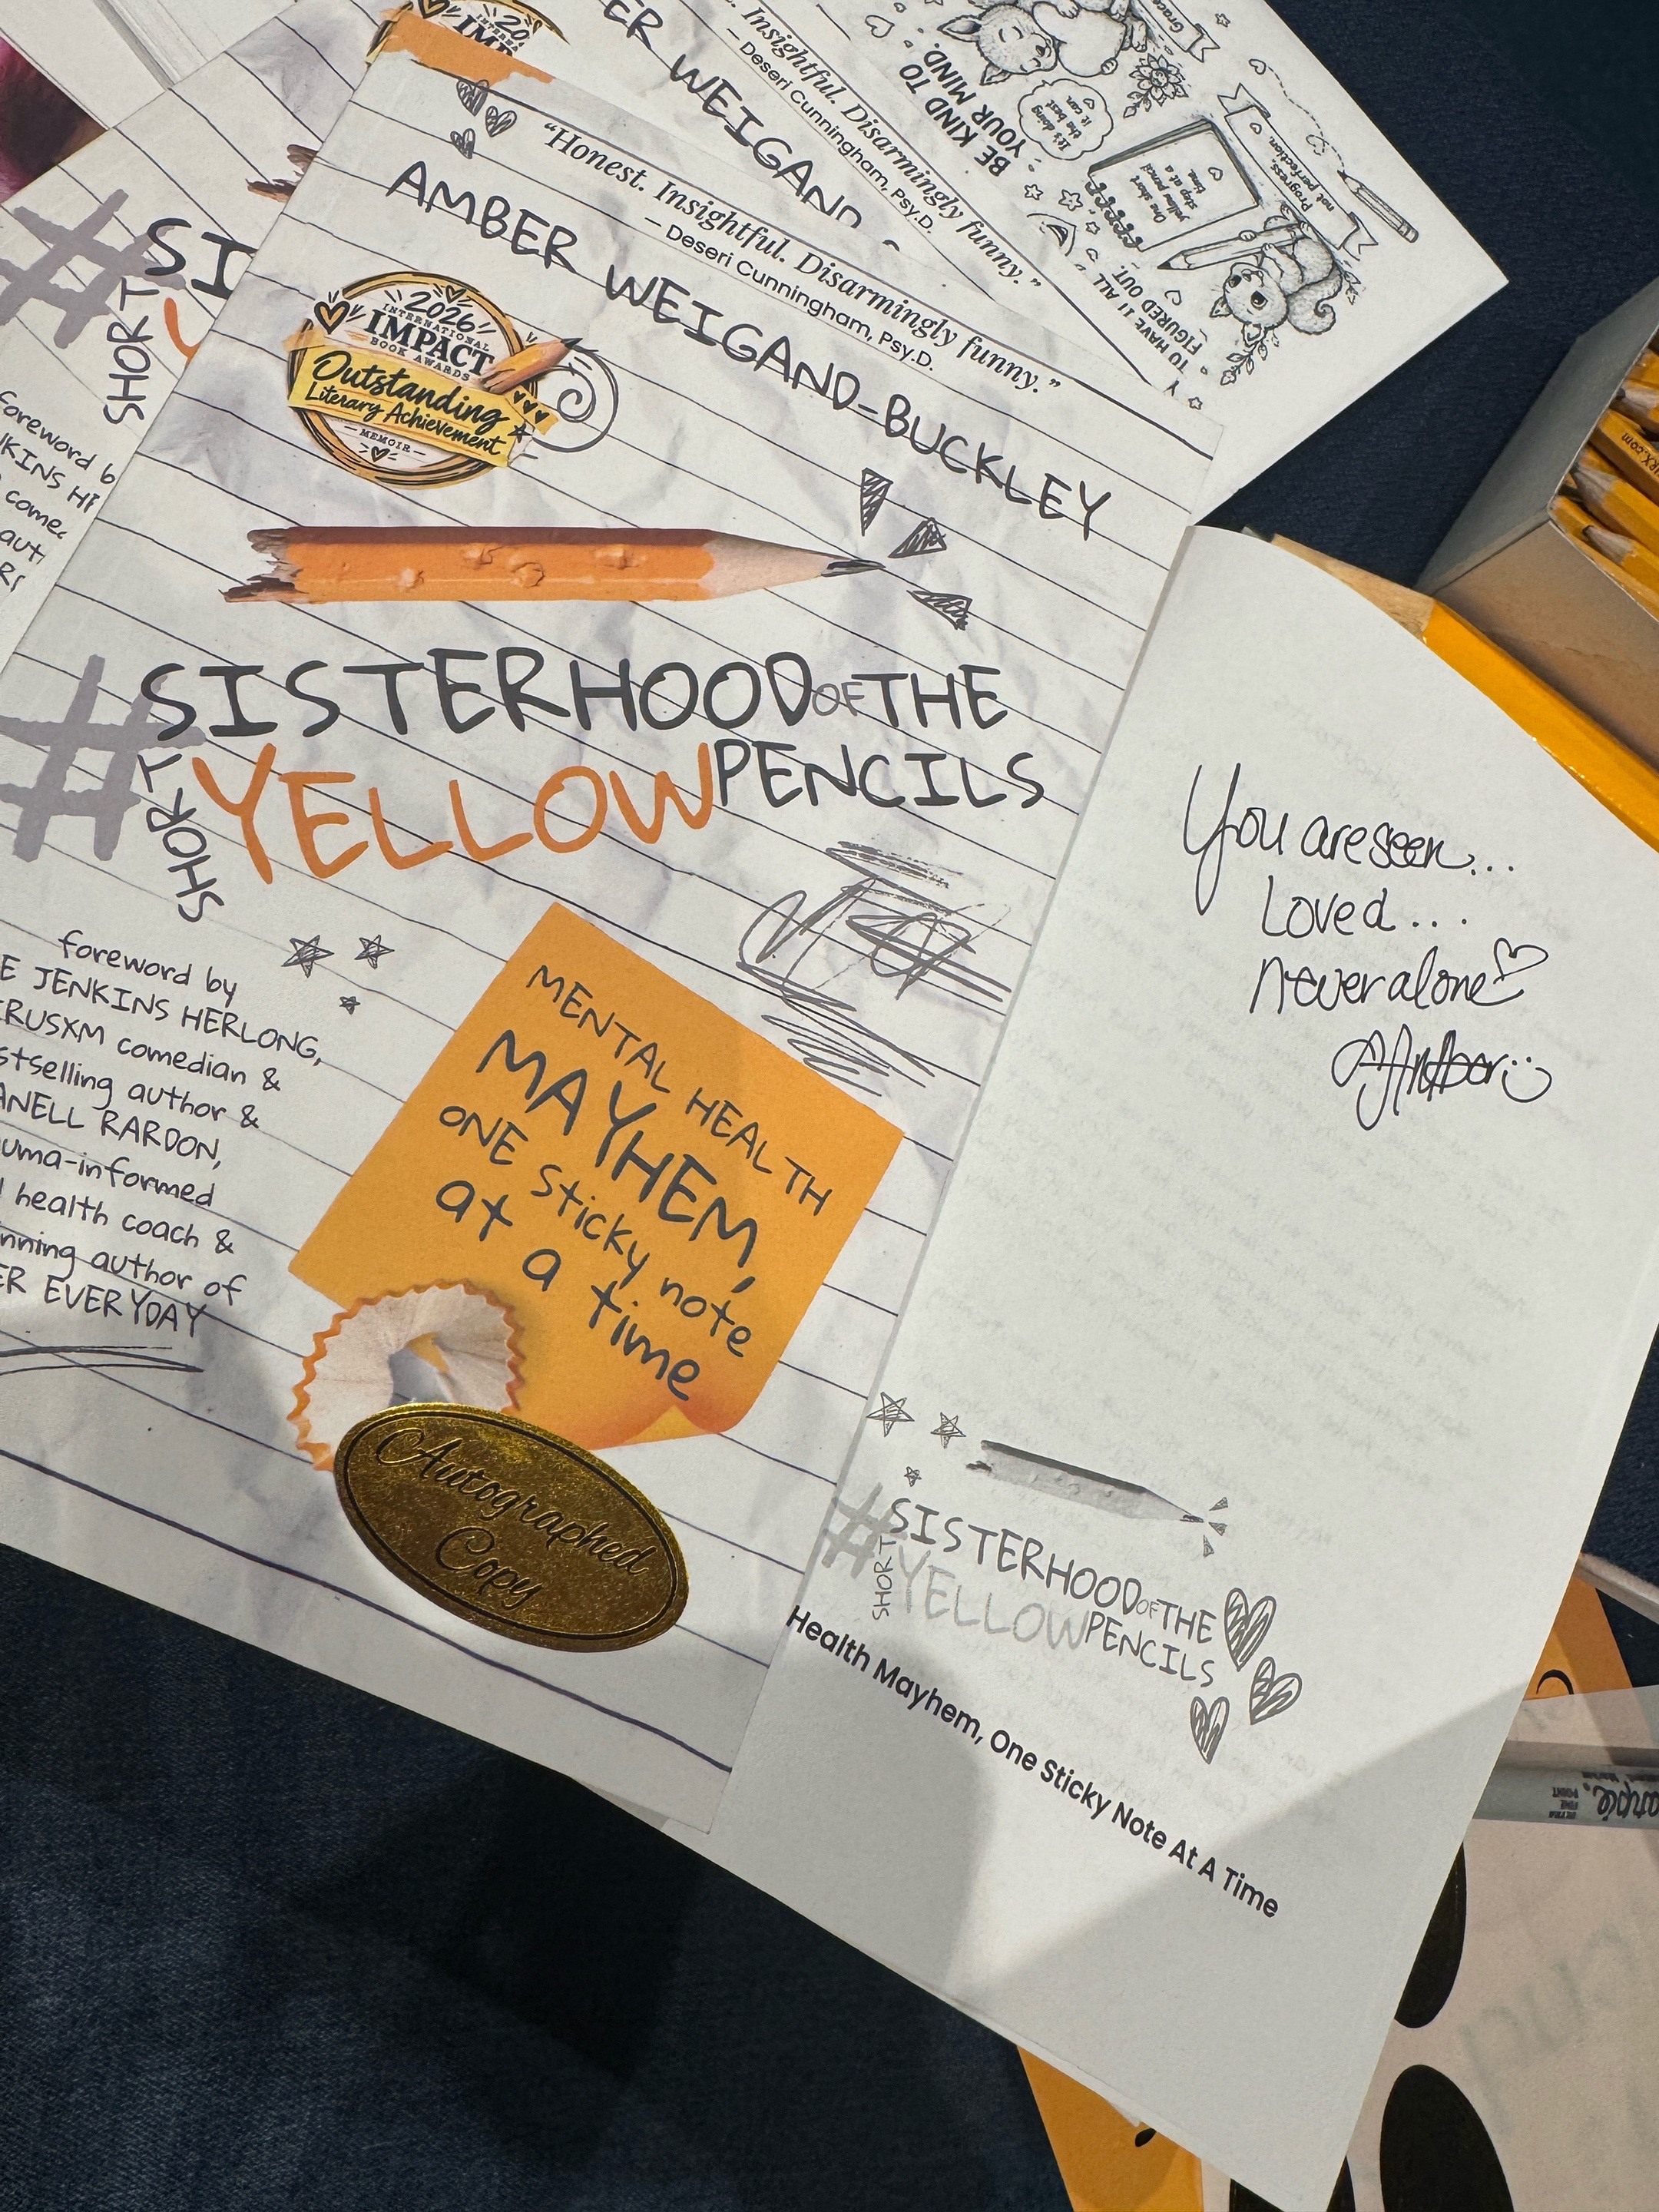 "Honest. Insightful. Disarmingly funny."
— Deseri Cunningham, Psy.D.
AMBER WEIGAND-BUCKLEY
2026
INTERNATIONAL
IMPACT
BOOK AWARDS
Outstanding
Literary Achievement
— MEMOIR —
#SISTERHOOD OF THE
SHORT YELLOW PENCILS
foreword by
E JENKINS HERLONG,
RUSXM comedian &
stselling author &
ANELL RARDON,
uma-informed
health coach &
nning author of
ER EVERYDAY
MENTAL HEALTH
MAYHEM,
ONE sticky note
at a time
Autographed
Copy
You are seen...
Loved...
never alone
Amber
#SISTERHOOD OF THE
SHORT YELLOW PENCILS
Health Mayhem, One Sticky Note At A Time
ER WEIGAND
. Insightful. Disarmingly funny."
— Deseri Cunningham, Psy.D.
20
IMP
#SI
SHORT Y
foreword b
KINS HE
come
aut
BE KIND TO
YOUR MIND.
It's doing
the best
it can.
Grace
One short
yellow pencil
step at a
time.
Progress,
not
perfection.
TO HAVE IT ALL
FIGURED OUT.
RX.com
ULTRA
FINE
POINT
arpie.